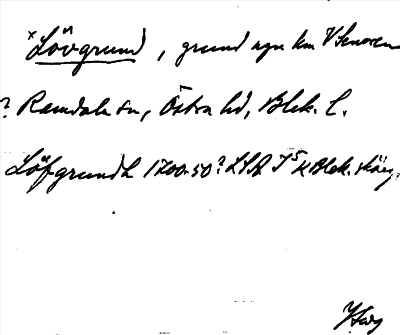 × Lövgrund, grund ngn km V Senoren
? Ramdala sn, Östra hd, Blek. l.
Löfgrund L 1700-50? LSA I 5 Blek. skärg.